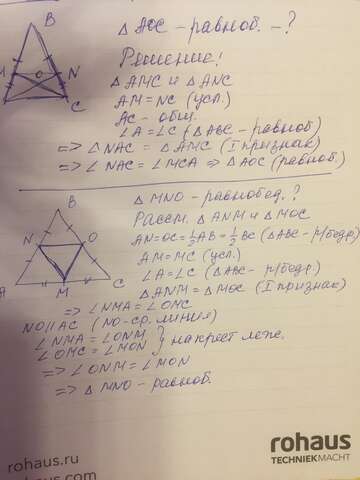 B
M
O
N
C
△ AOC – равноб. – ?
Решение:
△ AMC и △ ANC
AM = NC (усл.)
AC – общ.
∠A = ∠C (△ ABC – равноб)
=> △ NAC = △ AMC (I признак)
=> ∠ NAC = ∠ MCA => △ AOC (равноб)
B
N
O
A
M
C
△ MNO – равнобед. ?
Рассм. △ ANM и △ MOC
AN = OC = ½ AB = ½ BC (△ ABC – р/бедр.)
AM = MC (усл.)
∠A = ∠C (△ ABC – р/бедр.)
△ ANM = △ MOC (I признак)
=> ∠ NMA = ∠ OMC
NO || AC (NO – ср. линия)
∠ NMA = ∠ ONM
∠ OMC = ∠ MON } накрест леж.
=> ∠ ONM = ∠ MON
=> △ MNO – равноб.
rohaus
TECHNIEKMACHT
rohaus.ru
rohaus.com